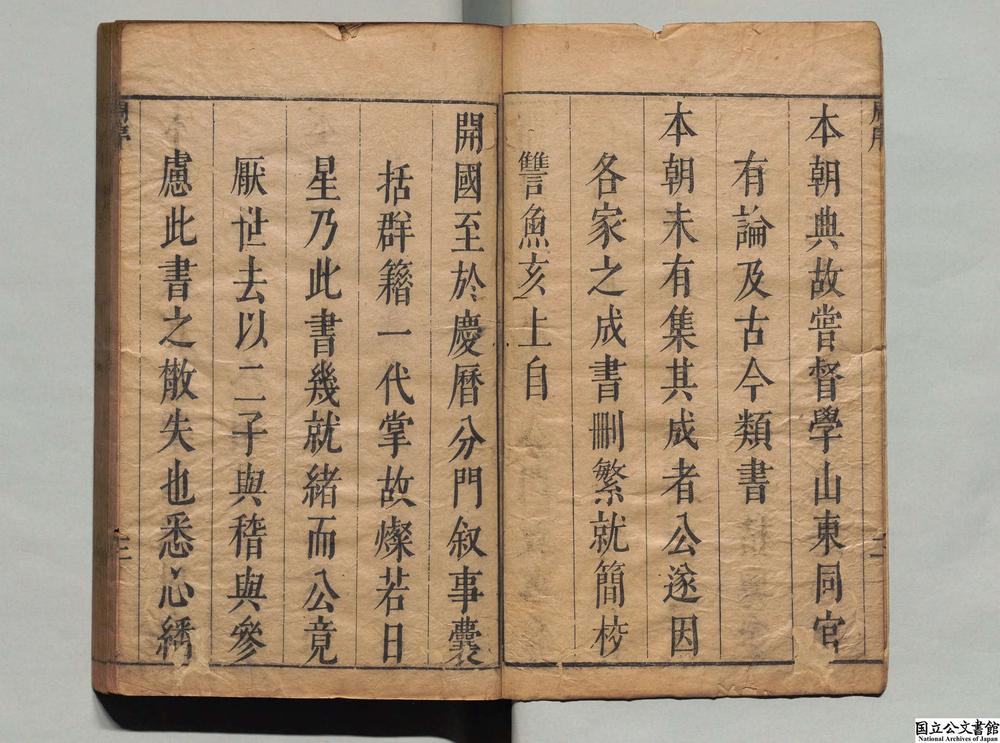 本朝典故嘗督學山東同官
有論及古今類書
本朝未有集其成者公遂因
各家之成書刪繁就簡校
讐魚亥上自
開國至於慶曆分門叙事囊
括群籍一代掌故燦若日
星乃此書幾就緒而公竟
厭世去以二子與稽與參
慮此書之散失也悉心繙
二
三
国立公文書館
National Archives of Japan